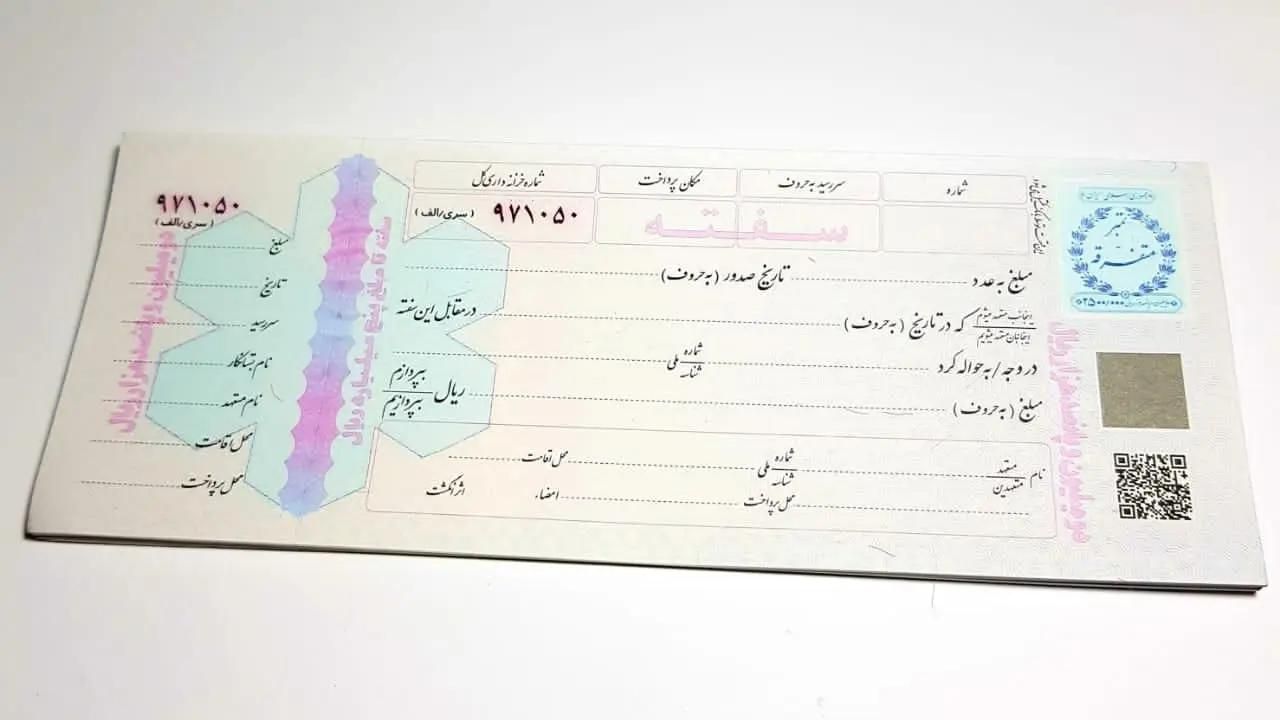 شماره
سررسید به حروف
مکان پرداخت
شماره خزانه داری کل
سفته
۹۷۱۰۵۰
( سری/الف )
مبلغ به عدد
تاریخ صدور ( به حروف)
اینجانب متعهد میشوم
اینجانبان متعهد میشویم
که در تاریخ ( به حروف)
در مقابل این سفته
در وجه / به حواله کرد
شماره
شناسه
ملی
مبلغ ( به حروف)
ریال
بپردازم
بپردازیم
نام
متعهد
متعهدین
شماره
شناسه
ملی
محل اقامت
محل پرداخت
امضاء
اثر انگشت
جمهوری اسلامی ایران
تمبر
متفرقه
۲۵۰۰/۰۰۰
دو میلیون و پانصد هزار ریال
سفته تا مبلغ پنج میلیارد ریال
۹۷۱۰۵۰
( سری/الف )
مبلغ
تاریخ
سررسید
نام بستانکار
نام متعهد
محل اقامت
محل پرداخت
دو میلیون و پانصد هزار ریال